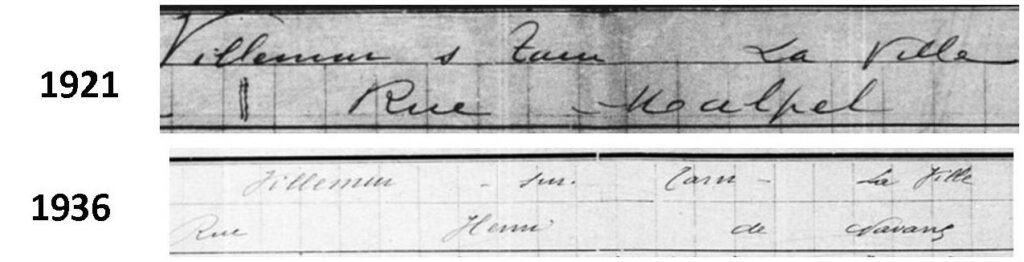 1921
Villemur s Tarn La Ville
Rue Malpel
1936
Villemur - sur. Tarn - La Ville
Rue Henri de Navarre